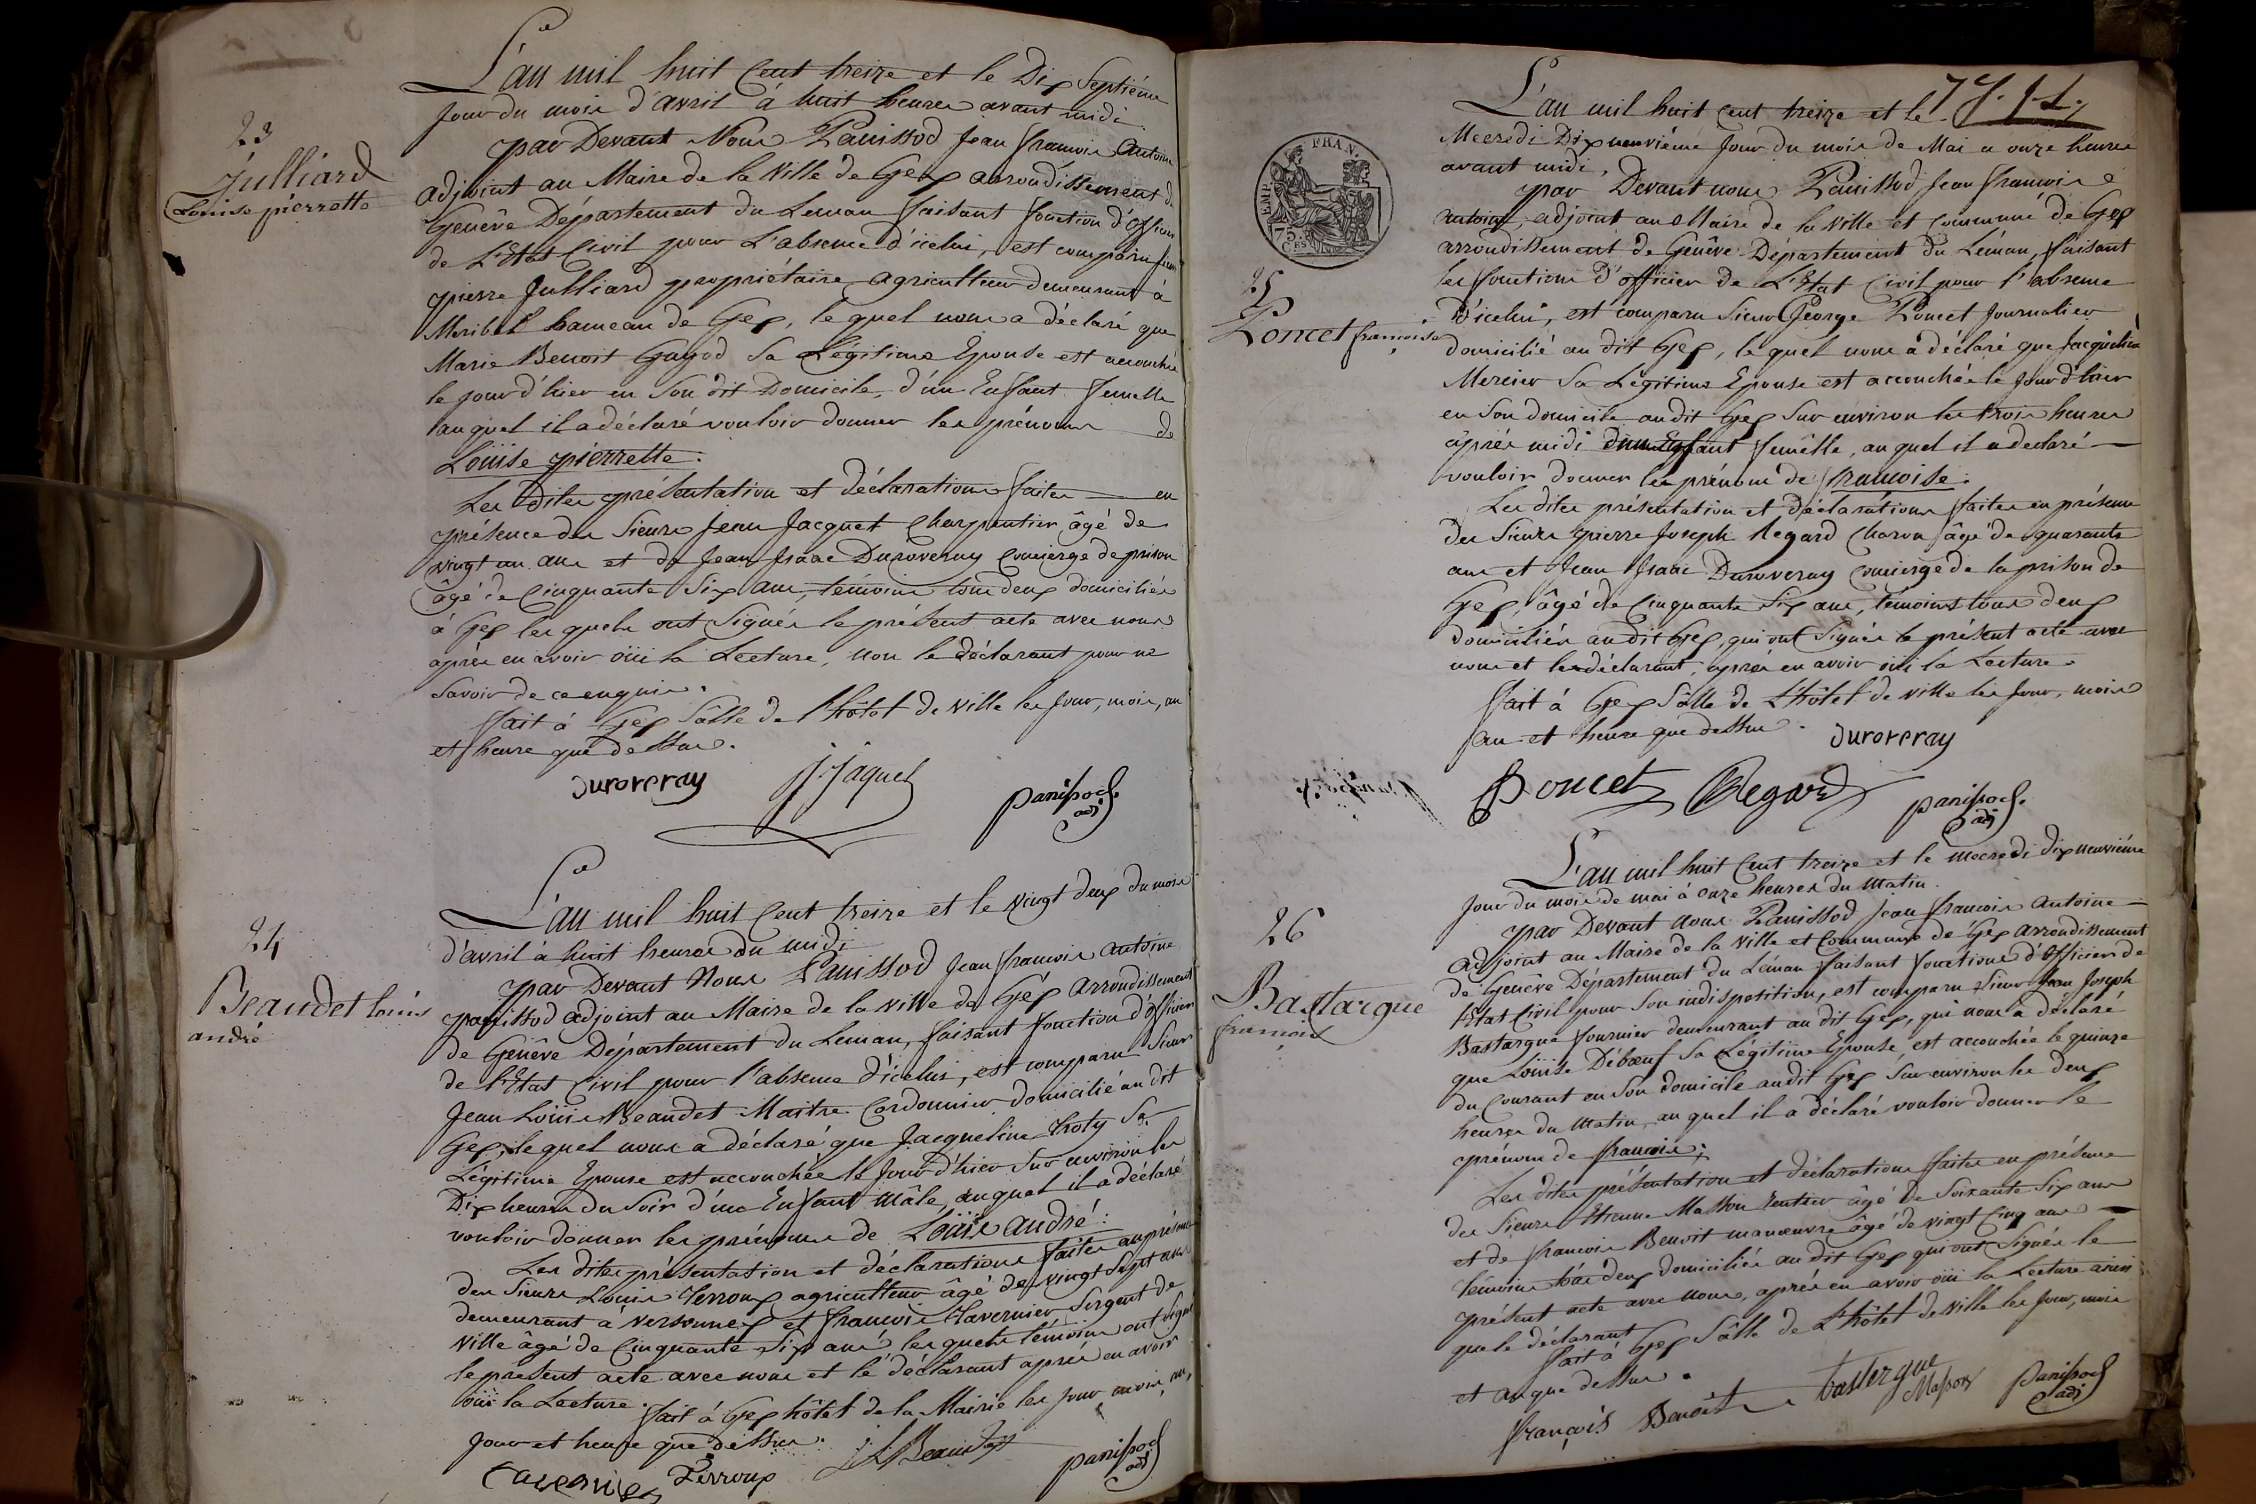 23
Julliard
Louise pierrette
L'an mil huit Cent treize et le Dix Septiéme
Jour du mois d'avril à huit heures avant midi
par Devant Nous Panissod Jean francois Antoine
adjoint au Maire de la Ville de Gex arrondissement de
Genêve Département du Leman faisant fonction d'officier
de L'Etat Civil pour L'absence d'icelui, est comparu sieur
pierre Julliard propriétaire agriculteur demeurant à
hameau de Gex, le quel nous a déclaré que
Marie Benoit Gayod Sa Légitime Epouse est accouchée
le jour d'hier en Son dit Domicile, d'un Enfant femelle
auquel il a déclaré vouloir donner les prénoms de
Louise pierrette.
Les dites présentation et déclaration faites en
présence des Sieurs Jean Jacquet Charpentier âgé de
vingt un ans et de Jean Isaac Duroveray Concierge de prison
âgé de Cinquante Six ans, témoins tous deux domiciliés
à Gex les quels ont Signés le présent acte avec nous
après en avoir oüi la Lecture, non le déclarant pour ne
Savoir de ce enquis.
fait à Gex Sâlle de l'hôtel de Ville les jour, mois, an
et heure que dessus.
Duroveray J. Jaquet panissod adj
24
Beaudet louis
andré
L'an mil huit Cent treize et le vingt deux du mois
d'avril à huit heures du midi
par Devant Nous Panissod Jean francois Antoine
panissod adjoint au Maire de la ville de Gex Arrondissement
de Genêve Département du Leman, faisant fonction d'officier
de l'Etat Civil pour l'absence d'icelui, est comparu Sieur
Jean Louis Beaudet Maitre Cordonnier domicilié au dit
Gex, le quel nous a déclaré que Jacqueline Sa
Légitime Epouse est accouchée le Jour d'hier Sur environ les
Dix heures du Soir d'un Enfant mâle, auquel il a déclaré
vouloir donner les prénoms de Louis andré.
Les dites présentation et déclaration faites en présence
des Sieurs Louis Perroux agriculteur âgé de vingt Sept ans
demeurant à versonnex et francois Tavernier Sergent de
ville âgé de Cinquante Six ans les quels témoins ont signé
le présent acte avec nous et le déclarant après en avoir
oüi la Lecture. fait à Gex hôtel de la Mairie les Jour mois, an,
Jour et heure que dessus.
Tavernier Perroux J L Beaudet panissod adj
EMP. FRAN.
75 CES
25
Poncet françoise
L'an mil huit Cent treize et le
Mecredi Dix neuviéme Jour du mois de Mai a onze heures
avant midi,
par Devant nous Panissod Jean francois
antoine, adjoint au Maire de la ville et commune de Gex
arrondissement de Genêve Département du Léman, faisant
les fonctions d'officier de L'Etat Civil pour l'absence
d'icelui, est comparu Sieur George Poncet Journalier
domicilié au dit Gex, le quel nous a déclaré que Jacqueline
Mercier Sa Légitime Epouse est accouchée le Jour d'hier
en Son domicile au dit Gex Sur environ les trois heures
après midi d'un Enfant femêlle, au quel il a declaré
vouloir donner les prénoms de francoise.
Les dites présentation et déclaration faites en présence
des Sieurs pierre Joseph Regard Charon âgé de quarante
ans et Jean Isaac Duroveray Concierge de la prison de
Gex, âgé de Cinquante Six ans, témoins tous deux
domiciliés au dit Gex, qui ont Signés le présent acte avec
nous et le déclarant, après en avoir oüi la Lecture.
fait à Gex Sâlle de L'hôtel de ville les Jour, mois
an et heure que dessus.
Duroveray
Poncet Regard panissod adj
26
Bastargue
francois
L'an mil huit Cent treize et le mecredi dix neuviéme
Jour du mois de mai à onze heures du matin.
par Devant nous Panissod Jean francois Antoine
adjoint au Maire de la ville et Commune de Gex arrondissement
de Genêve Département du Léman faisant fonctions d'Officier de
l'Etat Civil pour Son indisposition, est comparu Sieur Jean Joseph
Bastargue fournier demeurant au dit Gex, qui nous a déclaré
que Louise Débœuf Sa Légitime Epouse, est accouchée le quinze
du Courant en Son domicile au dit Gex Sur environ les deux
heures du Matin, au quel il a déclaré vouloir donner le
prénom de francois.
Les dites présentation et déclaration faites en présence
des Sieurs Etienne Masson rentier âgé de Soixante Six ans
et de francois Benoit manœuvre âgé de vingt Cinq ans
témoins deux domiciliés au dit Gex qui ont Signés le
présent acte avec nous, après en avoir oüi la Lecture ainsi
que le déclarant
fait à Gex Sâlle de L'hôtel de ville les Jour, mois
et an que dessus.
françois Benoit bastergue Masson panissod adj